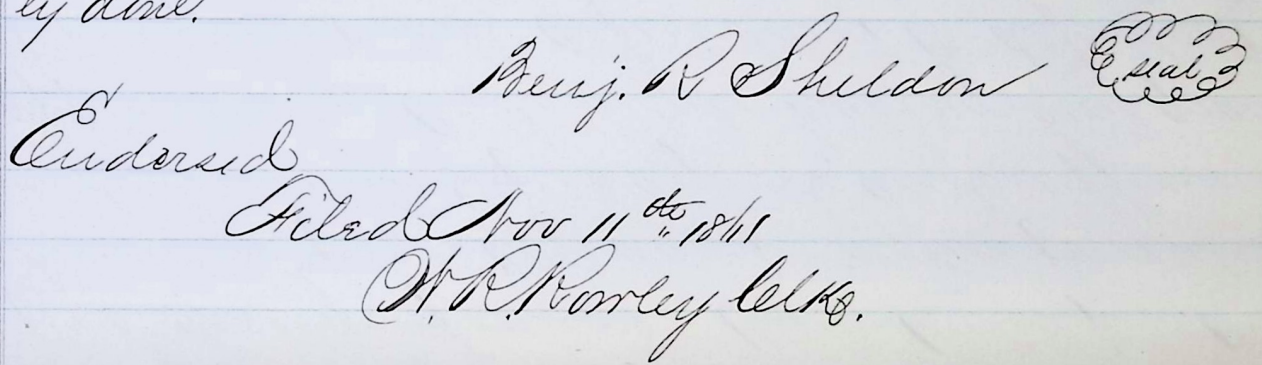 ly done.
Benj. R Sheldon seal
Endorsed
Filed Nov 11th
W. R. Rowley Clk.